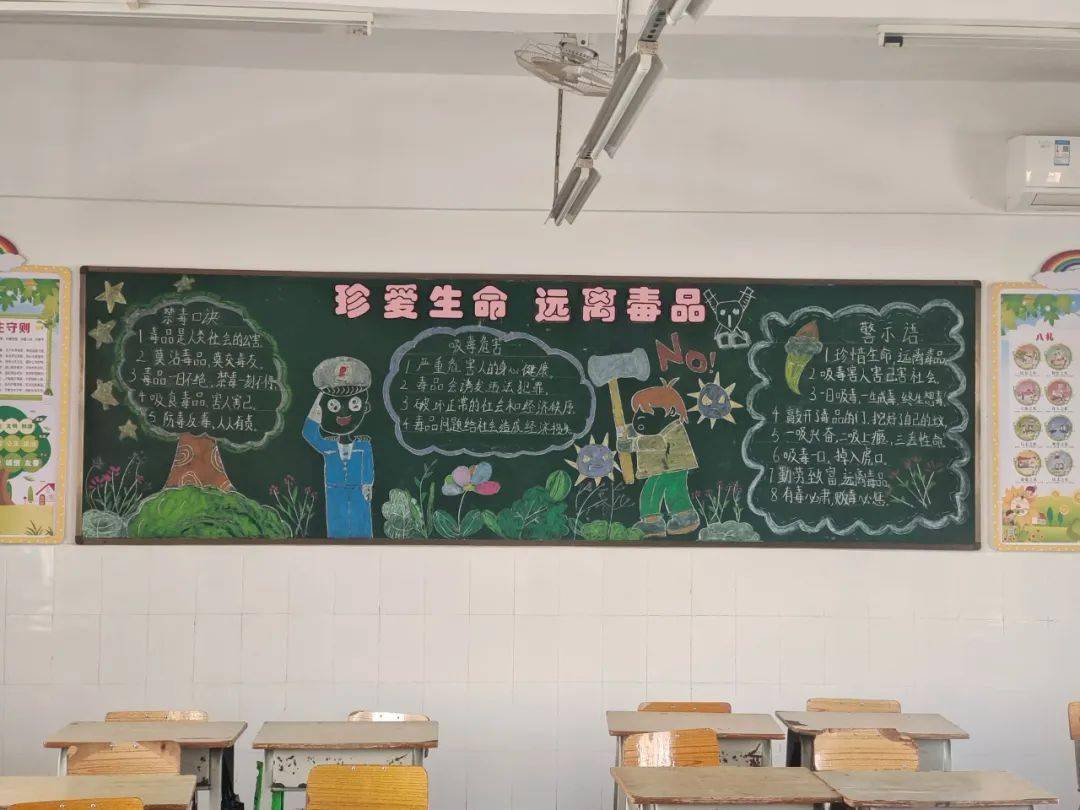 珍爱生命 远离毒品
禁毒口决
1 毒品是人类社会的公害
2 莫沾毒品,莫交毒友.
3 毒品一日不绝,禁毒一刻不停
4 吸食毒品,害人害己.
5 防毒反毒,人人有责.
吸毒危害
1 严重危害人的身心健康
2 毒品会诱发违法犯罪.
3 破坏正常的社会和经济秩序
4 毒品问题给社会造成经济损失
NO!
警示语
1 珍惜生命,远离毒品
2 吸毒害人害己害社会.
3 一日吸毒一生戒毒,终生想毒
4 敲开毒品的门,挖好自己的坟
5 一吸兴奋,二吸上瘾,三丢性命.
6 吸毒一口,掉入虎口.
7 勤劳致富,远离毒品
8 有毒必肃,贩毒必惩.
守则
八礼